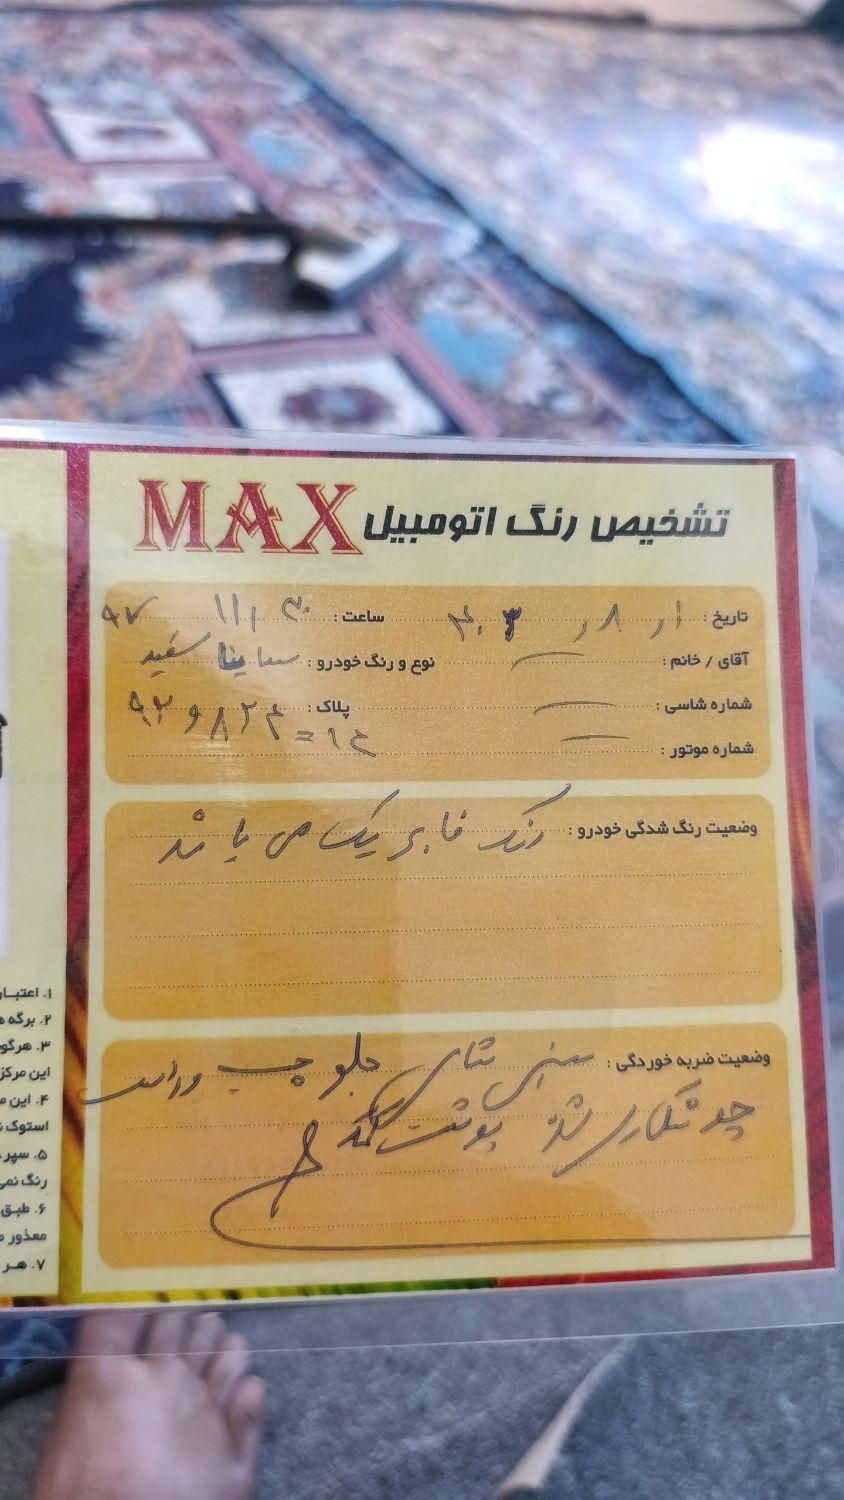 تشخیص رنگ اتومبیل MAX
تاریخ : ۱ر ۸ر ۴۰۳ ساعت : ۱۱ر۳۰ ۹۷
آقای / خانم : نوع و رنگ خودرو : ساینا سفید
شماره شاسی : پلاک :
شماره موتور :
وضعیت رنگ شدگی خودرو : رنگ فابریک می باشد
وضعیت ضربه خوردگی : سینی جلو چپ وراست
شد پوشت
۱. اعتبار
۲. برگه
۳. هرگو
این مرکز
۴. این
استوک
۵. سپر
رنگ نمی
۶. طبق
معذور
۷. هر